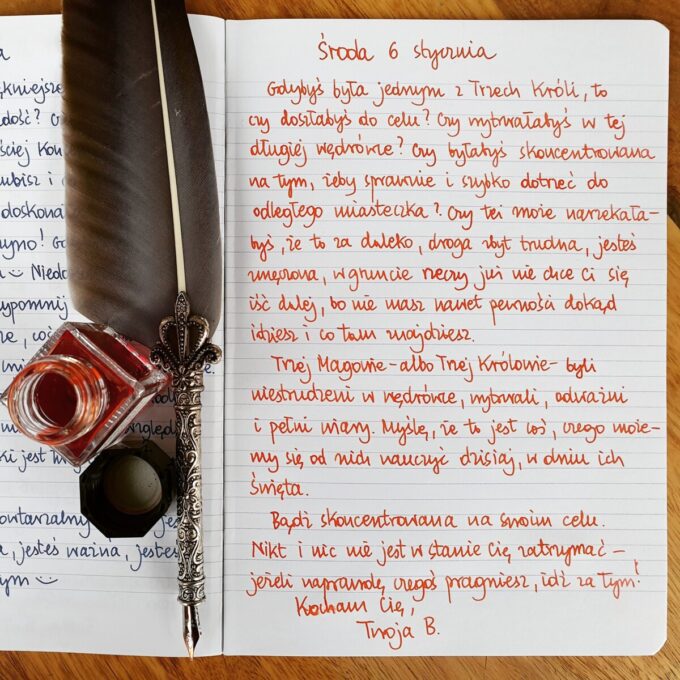 a
ękniejsze
dość? C
ściej Kon
ubisz i
doskona
zyno! Go
Niedo
zypomnij
re, coś
mi
e.
ględ
ki jest Tw
owtarzalny jes
a, jesteś ważna, jesteś
ym
Środa 6 stycznia
Gdybyś była jednym z Trzech Króli, to
czy doszłabyś do celu? Czy wytrwałabyś w tej
długiej wędrówce? Czy byłabyś skoncentrowana
na tym, żeby sprawnie i szybko dotrzeć do
odległego miasteczka? Czy też może narzekała-
byś, że to za daleko, droga zbyt trudna, jesteś
zmęczona, w gruncie rzeczy już nie chce Ci się
iść dalej, bo nie masz nawet pewności dokąd
idziesz i co tam znajdziesz.
Trzej Magowie - albo Trzej Królowie - byli
niestrudzeni w wędrówce, wytrwali, odważni
i pełni wiary. Myślę, że to jest coś, czego może-
my się od nich nauczyć dzisiaj, w dniu ich
święta.
Bądź skoncentrowana na swoim celu.
Nikt i nic nie jest w stanie Cię zatrzymać -
jeżeli naprawdę czegoś pragniesz, idź za tym!
Kocham Cię,
Twoja B.